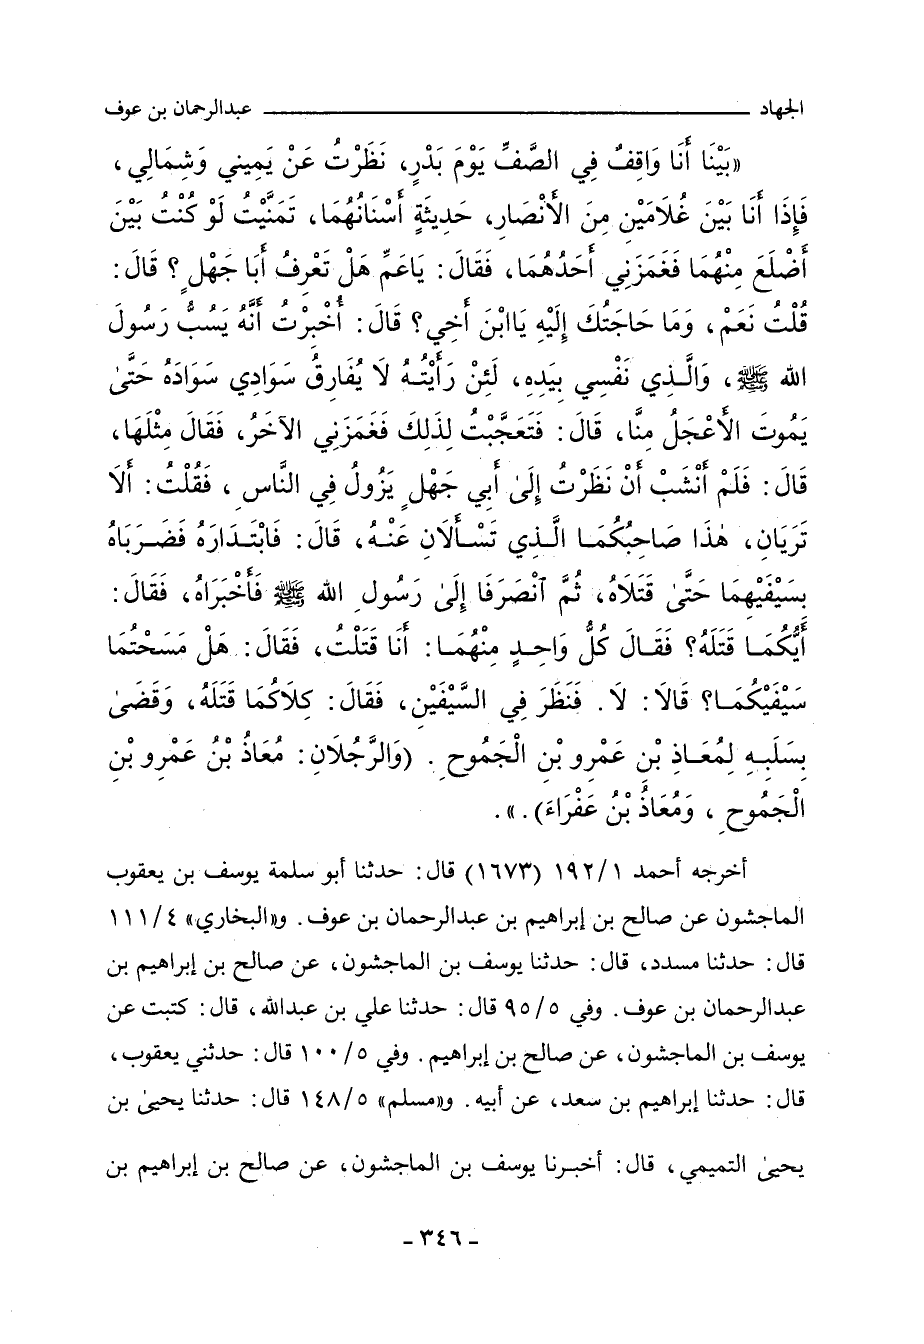 الجهاد ـــــــــ عبدالرحمان بن عوف
«بَيْنَا أَنَا وَاقِفٌ فِي الصَّفِّ يَوْمَ بَدْرٍ، نَظَرْتُ عَنْ يَمِينِي وَشِمَالِي،
فَإِذَا أَنَا بَيْنَ غُلَامَيْنِ مِنَ الأَنْصَارِ، حَدِيثَةٍ أَسْنَانُهُمَا، تَمَنَّيْتُ لَوْ كُنْتُ بَيْنَ
أَضْلَعَ مِنْهُمَا فَغَمَزَنِي أَحَدُهُمَا، فَقَالَ: يَاعَمِّ هَلْ تَعْرِفُ أَبَا جَهْلٍ؟ قَالَ:
قُلْتُ نَعَمْ، وَمَا حَاجَتُكَ إِلَيْهِ يَاابْنَ أَخِي؟ قَالَ: أُخْبِرْتُ أَنَّهُ يَسُبُّ رَسُولَ
الله ﷺ، وَالَّذِي نَفْسِي بِيَدِهِ، لَئِنْ رَأَيْتُهُ لَا يُفَارِقُ سَوَادِي سَوَادَهُ حَتَّىٰ
يَمُوتَ الأَعْجَلُ مِنَّا، قَالَ: فَتَعَجَّبْتُ لِذَلِكَ فَغَمَزَنِي الآخَرُ، فَقَالَ مِثْلَهَا،
قَالَ: فَلَمْ أَنْشَبْ أَنْ نَظَرْتُ إِلَىٰ أَبِي جَهْلٍ يَزُولُ فِي النَّاسِ، فَقُلْتُ: أَلَا
تَرَيَانِ، هٰذَا صَاحِبُكُمَا الَّذِي تَسْأَلَانِ عَنْهُ، قَالَ: فَابْتَدَارَهُ فَضَرَبَاهُ
بِسَيْفَيْهِمَا حَتَّىٰ قَتَلَاهُ، ثُمَّ ٱنْصَرَفَا إِلَىٰ رَسُولِ الله ﷺ فَأَخْبَرَاهُ، فَقَالَ:
أَيُّكُمَا قَتَلَهُ؟ فَقَالَ كُلُّ وَاحِدٍ مِنْهُمَا: أَنَا قَتَلْتُ، فَقَالَ: هَلْ مَسَحْتُمَا
سَيْفَيْكُمَا؟ قَالَا: لَا. فَنَظَرَ فِي السَّيْفَيْنِ، فَقَالَ: كِلَاكُمَا قَتَلَهُ، وَقَضَىٰ
بِسَلَبِهِ لِمُعَاذِ بْنِ عَمْرِو بْنِ الْجَمُوحِ. (وَالرَّجُلَانِ: مُعَاذُ بْنُ عَمْرِو بْنِ
الْجَمُوحِ، وَمُعَاذُ بْنُ عَفْرَاءَ).».
أخرجه أحمد ١/١٩٢ (١٦٧٣) قال: حدثنا أبو سلمة يوسف بن يعقوب
الماجشون عن صالح بن إبراهيم بن عبدالرحمان بن عوف. و«البخاري» ٤/١١١
قال: حدثنا مسدد، قال: حدثنا يوسف بن الماجشون، عن صالح بن إبراهيم بن
عبدالرحمان بن عوف. وفي ٥/٩٥ قال: حدثنا علي بن عبدالله، قال: كتبت عن
يوسف بن الماجشون، عن صالح بن إبراهيم. وفي ٥/١٠٠ قال: حدثني يعقوب،
قال: حدثنا إبراهيم بن سعد، عن أبيه. و«مسلم» ٥/١٤٨ قال: حدثنا يحيىٰ بن
يحيىٰ التميمي، قال: أخبرنا يوسف بن الماجشون، عن صالح بن إبراهيم بن
- ٣٤٦ -